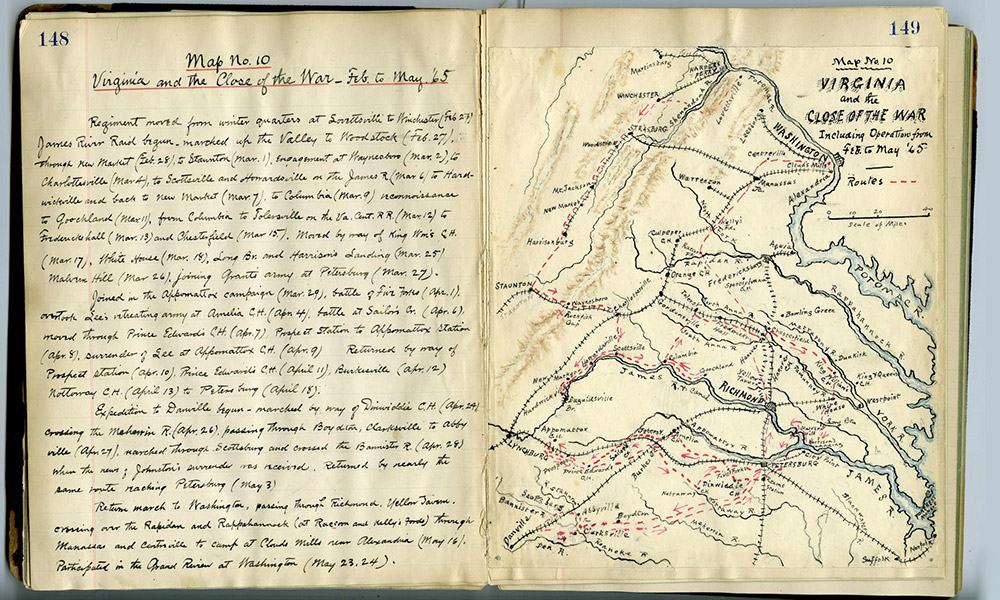 148
Map No. 10
Virginia and the Close of the War - Feb. to May '65
Regiment moved from winter quarters at Lovettsville to Winchester (Feb 25)
James River Raid begun - marched up the Valley to Woodstock (Feb. 27),
through New Market (Feb. 28) to Staunton (Mar. 1), Engagement at Waynesboro (Mar. 2), to
Charlottesville (Mar 4), to Scottsville and Howardsville on the James R (Mar 6) to Hard-
wicksville and back to New Market (Mar 7), to Columbia (Mar. 9) reconnoissance
to Goochland (Mar 11), from Columbia to Tolersville on the Va. Cent. R.R. (Mar. 12) to
Frederickshall (Mar. 13) and Chesterfield (Mar 15). Moved by way of King Wm's C.H.
(Mar. 17), White House (Mar. 18), Long Br. and Harrison's Landing (Mar. 25)
Malvern Hill (Mar 26), joining Grants army at Petersburg (Mar. 27).
Joined in the Appomattox campaign (Mar. 29), battle of Five Forks (Apr. 1),
overtook Lee's retreating army at Amelia C.H. (Apr. 4), battle at Sailors Cr. (Apr. 6),
moved through Prince Edwards C.H. (Apr. 7), Prospect Station to Appomattox Station
(Apr. 8), surrender of Lee at Appomattox C.H. (Apr. 9) Returned by way of
Prospect Station (Apr. 10), Prince Edwards C.H. (April 11), Burkesville (Apr. 12)
Nottoway C.H. (April 13) to Petersburg (April 18).
Expedition to Danville begun - marched by way of Dinwiddie C.H. (Apr. 24)
crossing the Meherrin R. (Apr. 26), passing through Boydton, Clarksville to Abby
ville (Apr 27), marched through Scottsburg and crossed the Bannister R. (Apr. 28)
when the news of Johnston's surrender was received. Returned by nearly the
same route reaching Petersburg (May 3)
Return march to Washington, passing through Richmond, Yellow Tavern,
crossing over the Rapidan and Rappahannock (at Racoon and Kelly's Fords) through
Manassas and Centreville to camp at Clouds Mills near Alexandria (May 16).
Participated in the Grand Review at Washington (May 23.24).
149
Map No 10
VIRGINIA
and the
CLOSE OF THE WAR
Including Operations from
FEB. to May '65
Routes
0 10 20 40
Scale of Miles
Martinsburg
HARPERS FERRY
WINCHESTER
Shenandoah R.
Lovettsville
Potomac
Leesburg
STRASBURG
WASHINGTON
Woodstock
Centreville
Clouds Mills
Alexandria
Manassas
Jc.
Warrenton
Mt. Jackson
New Market
Kelly's
Fd.
Harrisonburg
Culpeper
C.H.
Aquia
Rapidan R.
Fredericksburg
POTOMAC R.
Orange C.H.
STAUNTON
Waynesboro
Rockfish
Gap
Charlottesville
Gordonsville
North Anna
Bowling Green
Rappahannock R.
Chesterfield
South Anna R.
Dunkirk
King William
King & Queen
C.H.
Scottsville
Columbia
Goochland
Howardsville
New Market
Hardwicksville
Duguidsville
Br.
JAMES R.
RICHMOND
Yellow
Tavern
White
House
Westpoint
YORK R.
Long Br.
Appomattox
C.H.
LYNCHBURG
Prince Edwards
C.H.
Amelia
Appomattox R.
PETERSBURG
JAMES R.
Five Forks
Dinwiddie
C.H.
Reams
Station
Nottoway
C.H.
Nottoway R.
Bannister R.
Abbyville
Boydton
Meherrin R.
Clarksville
Danville
Dan R.
Roanoke R.
Blackwater
Suffolk
Norfolk